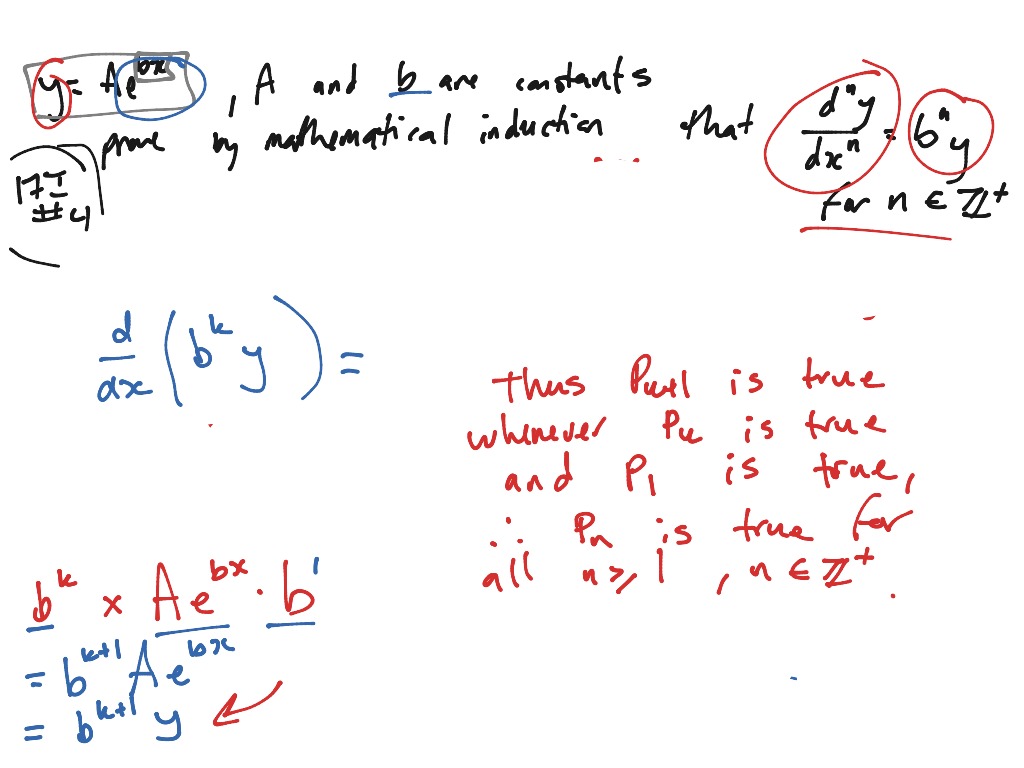 y = Ae^{bx}, A and b are constants
prove by mathematical induction that \frac{d^n y}{dx^n} = b^n y
17I
#4
for n ∈ ℤ⁺
\frac{d}{dx} ( b^k y ) =
Thus P_{k+1} is true
whenever P_k is true
and P_1 is true,
∴ P_n is true for
all n ⩾ 1, n ∈ ℤ⁺.
b^k × Ae^{bx} · b^1
= b^{k+1} Ae^{bx}
= b^{k+1} y